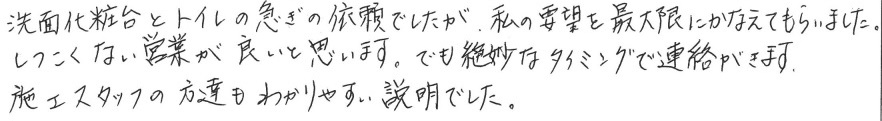 洗面化粧台とトイレの急ぎの依頼でしたが、私の要望を最大限にかなえてもらいました。
しつこくない営業が良いと思います。でも絶妙なタイミングで連絡がきます。
施工スタッフの方達もわかりやすい説明でした。